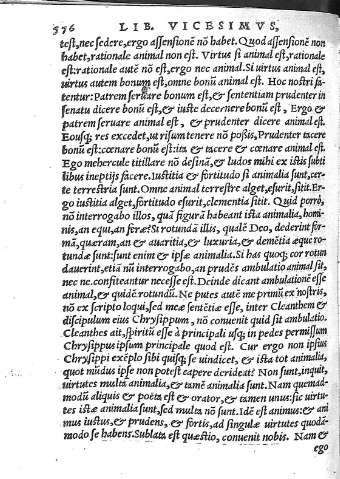 576 LIB. VICESIMVS,
test, nec sedere, ergo assensionẽ nõ habet. Quod assensionẽ non
habet, rationale animal non est. Virtus si animal est, rationale
est: rationale autẽ nõ est, ergo nec animal. Si uirtus animal est,
uirtus autem bonum est, omne bonũ animal est. Hoc nostri fa
tentur: Patrem seruare bonum est, & sententiam prudenter in
senatu dicere bonũ est, & iuste decernere bonũ est, Ergo &
patrem seruare animal est, & prudenter dicere animal est.
Eousq; res excedet, ut risum tenere nõ possis, Prudenter tacere
bonũ est: cœnare bonũ est: ita & tacere & cœnare animal est.
Ego mehercule titillare nõ desinã, & ludos mihi ex istis subti
libus ineptijs facere. Iustitia & fortitudo si animalia sunt, cer-
te terrestria sunt. Omne animal terrestre alget, esurit, sitit. Er-
go iustitia alget, fortitudo esurit, clementia sitit. Quid porrò,
nõ interrogabo illos, quã figurã habeant ista animalia, homi-
nis, an equi, an feræ? Si rotundã illis, qualẽ Deo, dederint for-
mã, quæram, an & auaritia, & luxuria, & demẽtia æque ro-
tundæ sunt: sunt enim & ipsæ animalia. Si has quoq; cor rotun
dauerint, etiã nũ interrogabo, an prudẽs ambulatio animal sit,
nec ne. confiteantur necesse est. Deinde dicant ambulationẽ esse
animal, & quidẽ rotundũ. Ne putes autẽ me primũ ex nostris,
nõ ex scripto loqui, sed meæ sentẽtiæ esse, inter Cleanthem &
discipulum eius Chrysippum, nõ conuenit quid sit ambulatio.
Cleanthes ait, spiritũ esse à principali usq; in pedes permissum
Chrysippus ipsum principale quod est. Cur ergo non ipsius
Chrysippi exẽplo sibi quisq; se uindicet, & ista tot animalia,
quot mũdus ipse non potest capere derideat? Non sunt, inquit,
uirtutes multa animalia, & tamẽ animalia sunt. Nam quemad-
modũ aliquis & poëta est & orator, & tamen unus: sic uirtu-
tes istæ animalia sunt, sed multa nõ sunt. Idẽ est animus: & ani
mus iustus, & prudens, & fortis, ad singulæ uirtutes quodã-
modo se habens. Sublata est quæstio, conuenit nobis. Nam &
ego